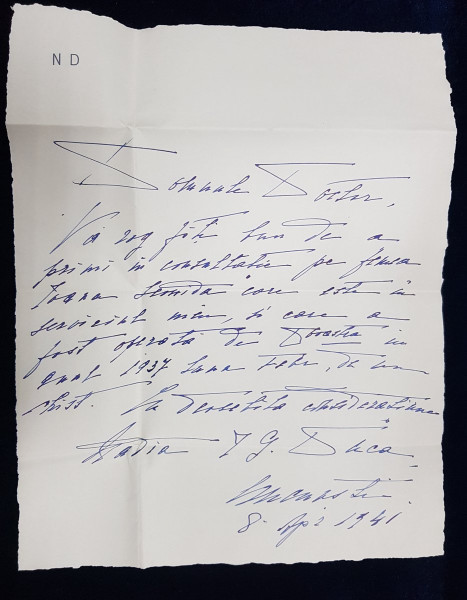 N D
Domnule Doctor,
Vă rog fiți bun de a
primi in consultatie pe femea
Ioana care este in
serviciul meu, și care a
fost operată de Dvoastră in
anul 1937 luna Febr, de un
chist. Cu deosebita consideratiune
Nadia I G. Duca
8. Apr 1941.